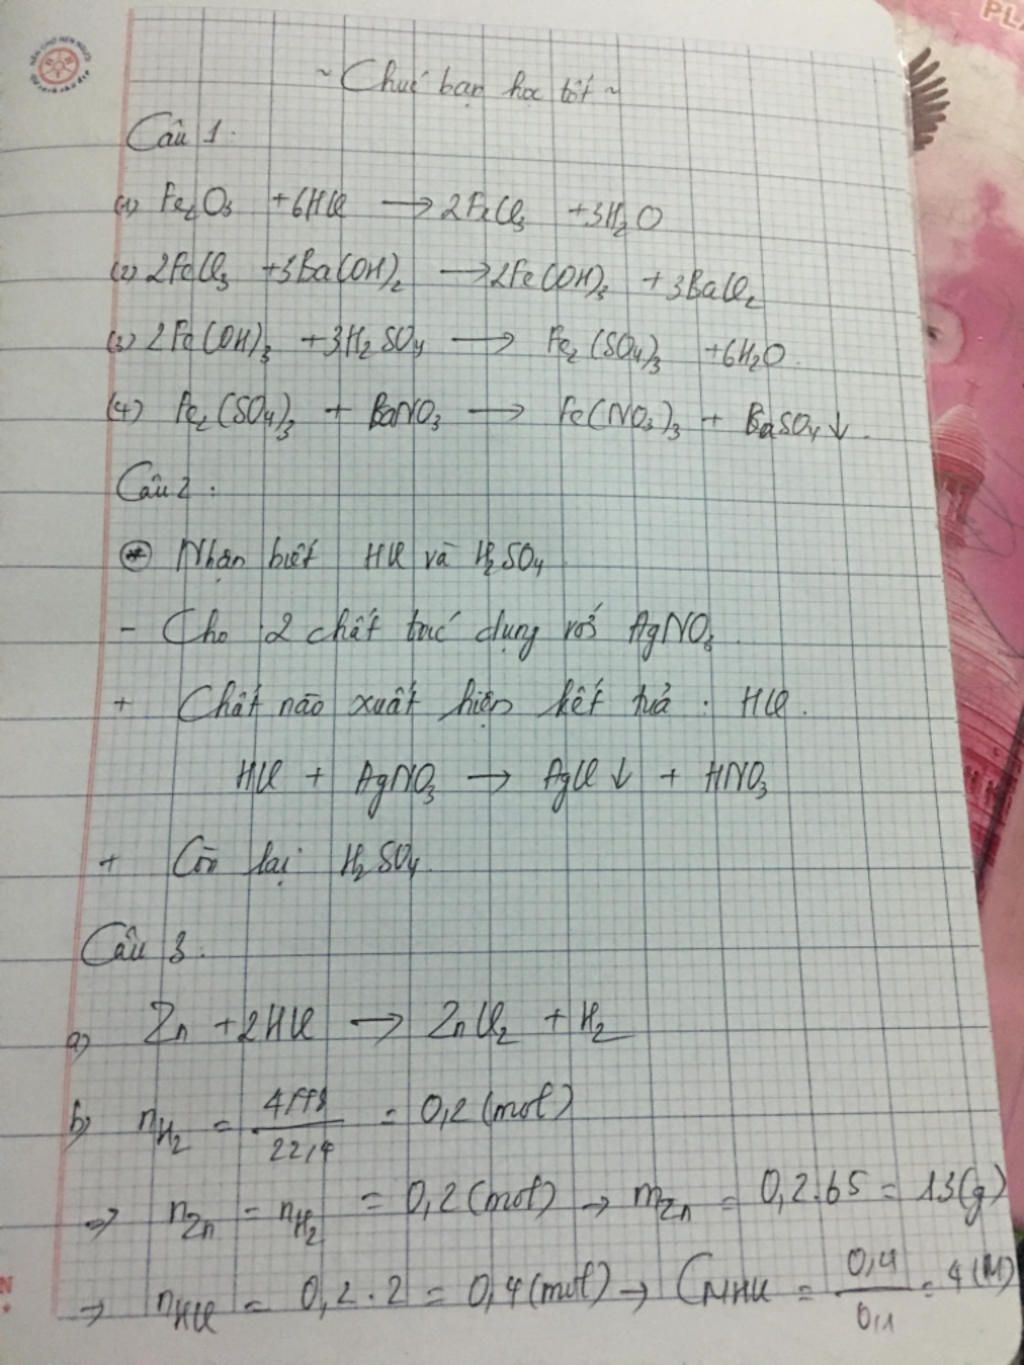 ~ Chúc bạn học tốt ~
Câu 1.
(1) Fe₂O₃ + 6HCl → 2FeCl₃ + 3H₂O
(2) 2FeCl₃ + 3Ba(OH)₂ → 2Fe(OH)₃ + 3BaCl₂
(3) 2Fe(OH)₃ + 3H₂SO₄ → Fe₂(SO₄)₃ + 6H₂O.
(4) Fe₂(SO₄)₃ + BaNO₃ → Fe(NO₃)₃ + BaSO₄↓.
Câu 2:
* Nhận biết HCl và H₂SO₄
- Cho 2 chất tác dụng với AgNO₃.
+ Chất nào xuất hiện kết tủa: HCl.
HCl + AgNO₃ → AgCl↓ + HNO₃
+ Còn lại H₂SO₄.
Câu 3.
a) Zn + 2HCl → ZnCl₂ + H₂
b) nH₂ = 4,48/22,4 = 0,2 (mol)
⇒ nZn = nH₂ = 0,2 (mol) → mZn = 0,2.65 = 13(g)
→ nHCl = 0,2.2 = 0,4 (mol) → CMHCl = 0,4/0,1 = 4 (M)